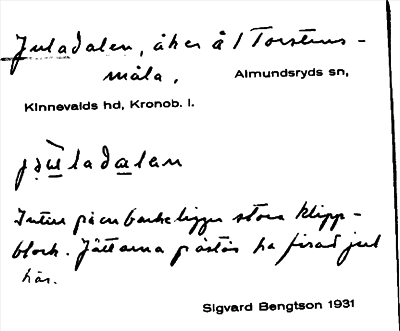 Juladalen, åker å 1 Torstens-
måla, Almundsryds sn,
Kinnevalds hd, Kronob. l.
jùladalan
Intill på en backe ligger stora klipp-
block. Jättarna påstås ha firad jul
här.
Sigvard Bengtson 1931